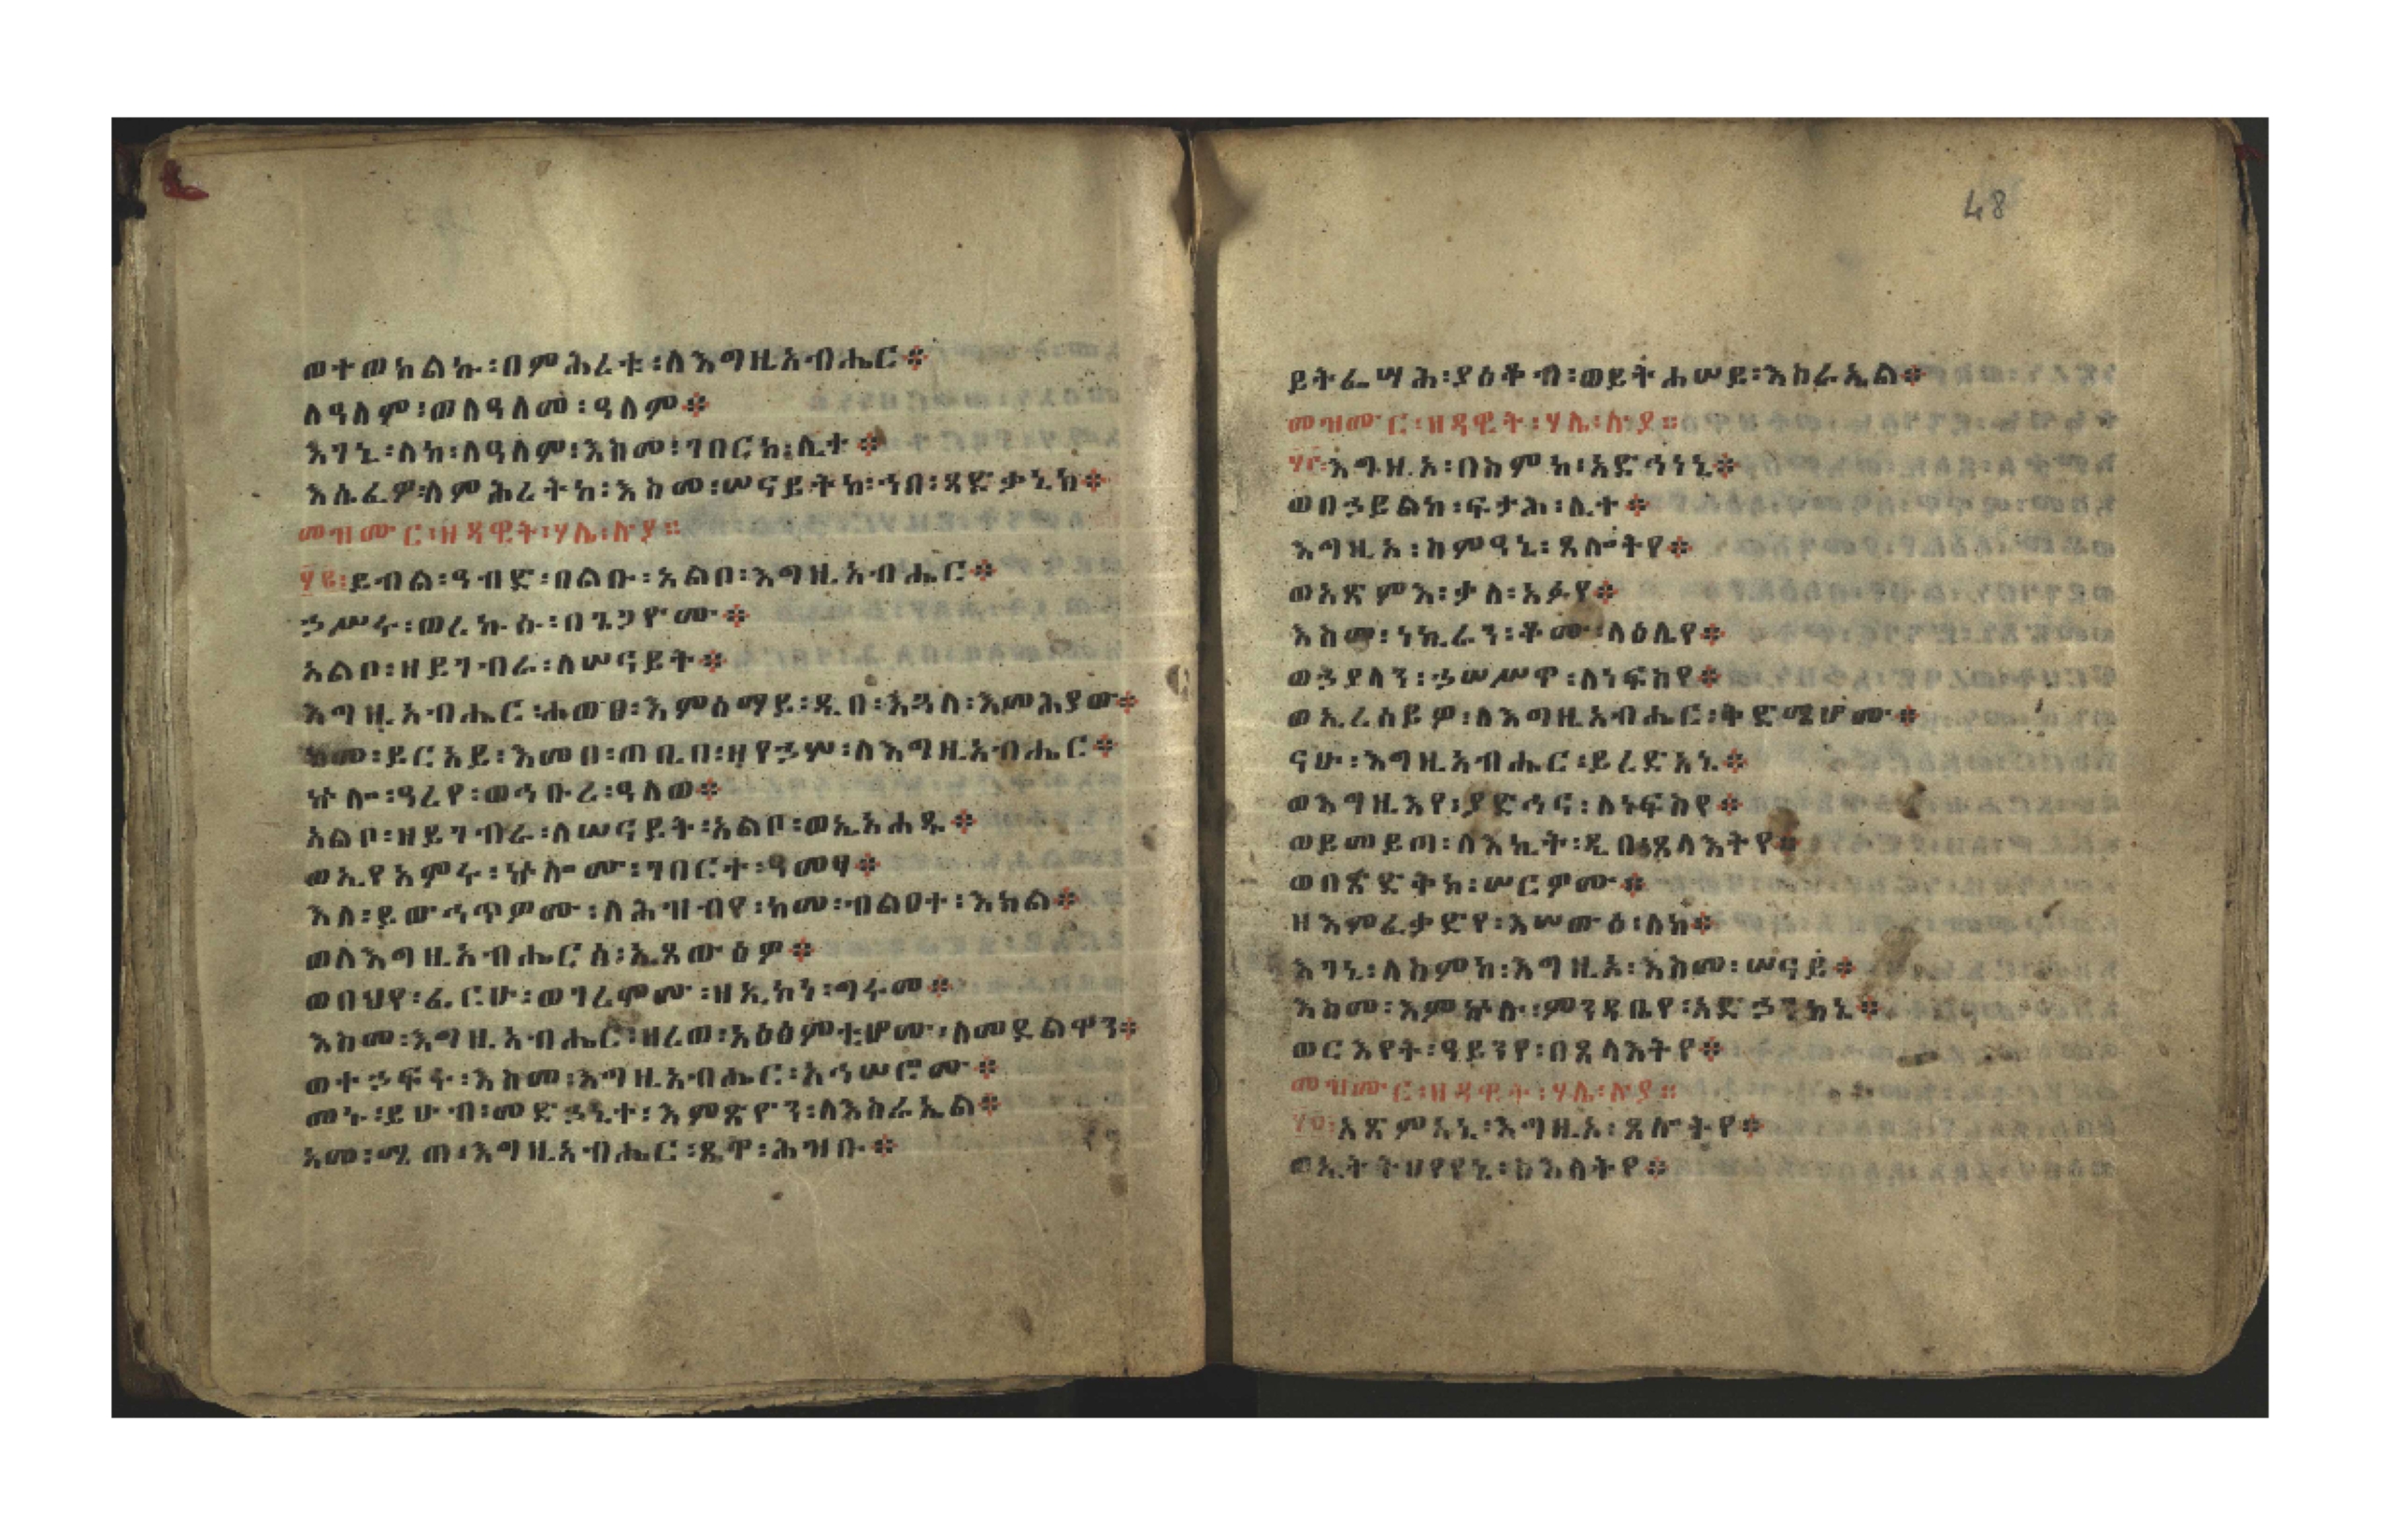 ወተወከልኩ፡በምሕረቱ፡ለእግዚአብሔር፨
ለዓለም፡ወለዓለመ፡ዓለም፨
እገኒ፡ለከ፡ለዓለም፡እስመ፡ገበርከ፡ሊተ፨
እሴፈዎ፡ለምሕረትከ፡እስመ፡ሠናይት፡ኀበ፡ጻድቃኒከ፨
መዝሙር፡ዘዳዊት፡ሃሌ፡ሉያ።
ይብል፡ዓብድ፡በልቡ፡አልቦ፡እግዚአብሔር፨
ኃሥሩ፡ወረኩሱ፡በጌጋዮሙ፨
አልቦ፡ዘይገብራ፡ለሠናይት፨
እግዚአብሔር፡ሐወፀ፡እምሰማይ፡ዲበ፡እጓለ፡እመሕያው፨
ከመ፡ይርአይ፡እመቦ፡ጠቢብ፡ዘየኃሥ፡ለእግዚአብሔር፨
ኵሉ፡ዓረየ፡ወኅቡረ፡ዓለወ፨
አልቦ፡ዘይገብራ፡ለሠናይት፡አልቦ፡ወኢአሐዱ፨
ወኢየአምሩ፡ኵሎሙ፡ገበርተ፡ዓመፃ፨
እለ፡ይውኅጥዎሙ፡ለሕዝብየ፡ከመ፡ብልዐተ፡እክል፨
ወለእግዚአብሔርሰ፡ኢጸውዕዎ፨
ወበህየ፡ፈርሁ፡ወገረሞሙ፡ዘኢኮነ፡ግሩመ፨
እስመ፡እግዚአብሔር፡ዘረወ፡አዕፅምቲሆሙ፡ለመደልዋን፨
ወተኃፍሩ፡እስመ፡እግዚአብሔር፡አኅሠሮሙ፨
መኑ፡ይሁብ፡መድኃኒተ፡እምጽዮን፡ለእስራኤል፨
አመ፡ሜጠ፡እግዚአብሔር፡ጼዋ፡ሕዝቡ፨
48
ይትፌሣሕ፡ያዕቆብ፡ወይትሐሠይ፡እስራኤል፨
መዝሙር፡ዘዳዊት፡ሃሌ፡ሉያ።
እግዚኦ፡በስምከ፡አድኅነኒ፨
ወበኃይልከ፡ፍታሕ፡ሊተ፨
እግዚኦ፡ስምዓኒ፡ጸሎትየ፨
ወአጽምእ፡ቃለ፡አፉየ፨
እስመ፡ነኪራን፡ቆሙ፡ላዕሌየ፨
ወኃያላን፡ኃሠሥዋ፡ለነፍስየ፨
ወኢረሰይዎ፡ለእግዚአብሔር፡ቅድሜሆሙ፨
ናሁ፡እግዚአብሔር፡ይረድአኒ፨
ወእግዚእየ፡ያድኅና፡ለነፍስየ፨
ወይመይጣ፡ለእኪት፡ዲበ፡ጸላእትየ፨
ወበጽድቅከ፡ሠርዎሙ፨
ዘእምፈቃድየ፡እሠውዕ፡ለከ፨
እገኒ፡ለስምከ፡እግዚኦ፡እስመ፡ሠናይ፨
እስመ፡እምኵሉ፡ምንዳቤየ፡አድኃንከኒ፨
ወርእየት፡ዓይንየ፡በጸላእትየ፨
መዝሙር፡ዘዳዊት፡ሃሌ፡ሉያ።
አጽምአኒ፡እግዚኦ፡ጸሎትየ፨
ወኢትትሀየየኒ፡ስእለትየ፨